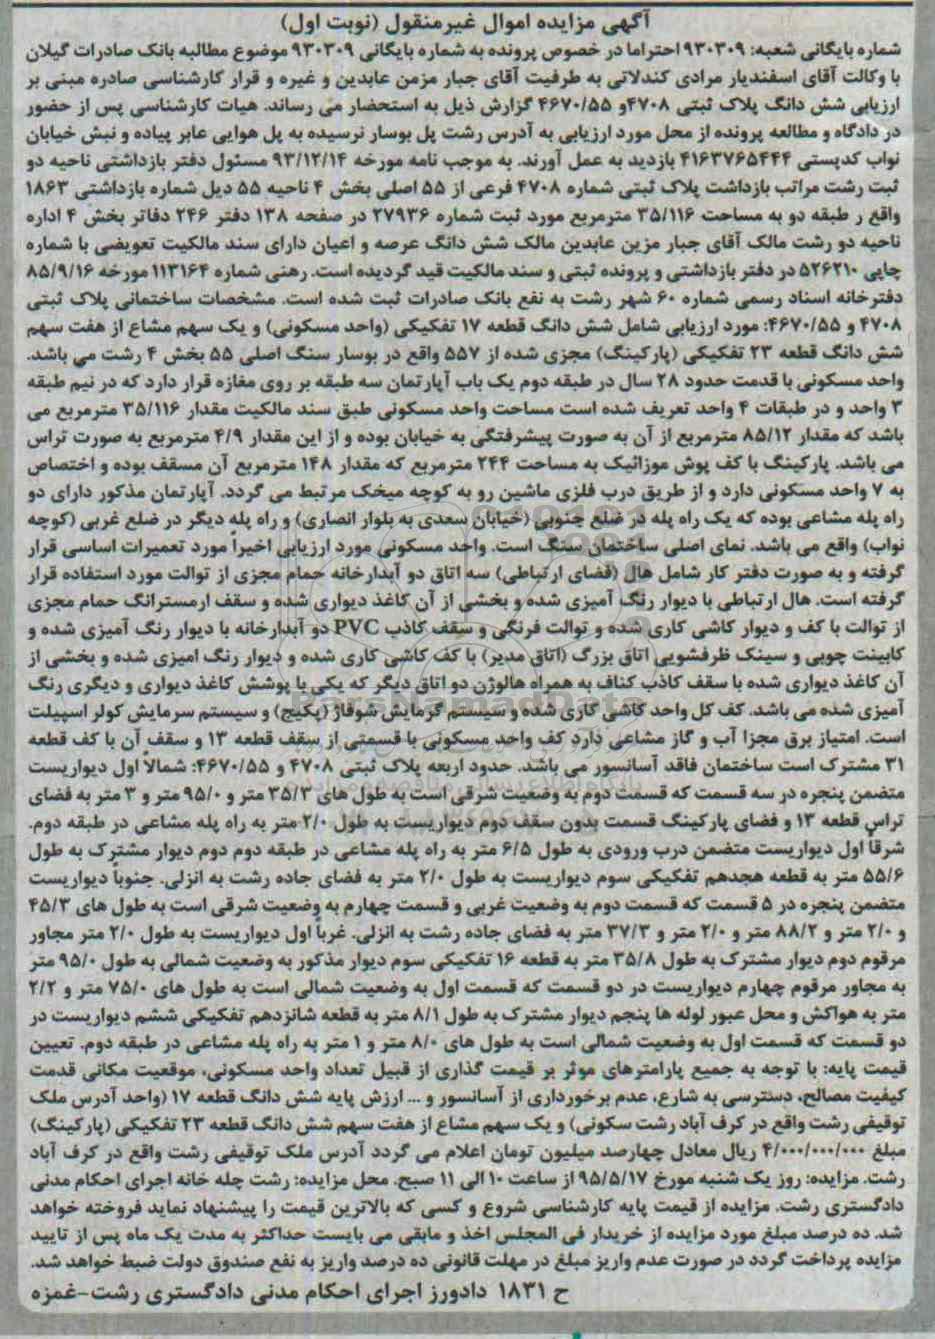 آگهی مزایده اموال غیرمنقول (نوبت اول)
شماره بایگانی شعبه: ۹۳۰۳۰۹ احتراما در خصوص پرونده به شماره بایگانی ۹۳۰۳۰۹ موضوع مطالبه بانک صادرات گیلان
با وکالت آقای اسفندیار مرادی کندلاتی به طرفیت آقای جبار مزمن عابدین و غیره و قرار کارشناسی صادره مبنی بر
ارزیابی شش دانگ پلاک ثبتی ۴۷۰۸و ۴۶۷۰/۵۵ گزارش ذیل به استحضار می رساند. هیات کارشناسی پس از حضور
در دادگاه و مطالعه پرونده از محل مورد ارزیابی به آدرس رشت پل بوسار نرسیده به پل هوایی عابر پیاده و نبش خیابان
نواب کدپستی ۴۱۶۳۷۶۵۴۴۴ بازدید به عمل آورند. به موجب نامه مورخه ۹۳/۱۲/۱۴ مسئول دفتر بازداشتی ناحیه دو
ثبت رشت مراتب بازداشت پلاک ثبتی شماره ۴۷۰۸ فرعی از ۵۵ اصلی بخش ۴ ناحیه ۵۵ دیل شماره بازداشتی ۱۸۶۳
واقع ر طبقه دو به مساحت ۳۵/۱۱۶ مترمربع مورد ثبت شماره ۲۷۹۳۶ در صفحه ۱۳۸ دفتر ۲۴۶ دفاتر بخش ۴ اداره
ناحیه دو رشت مالک آقای جبار مزین عابدین مالک شش دانگ عرصه و اعیان دارای سند مالکیت تعویضی با شماره
چاپی ۵۲۶۲۱۰ در دفتر بازداشتی و پرونده ثبتی و سند مالکیت قید گردیده است. رهنی شماره ۱۱۳۱۶۴ مورخه ۸۵/۹/۱۶
دفترخانه اسناد رسمی شماره ۶۰ شهر رشت به نفع بانک صادرات ثبت شده است. مشخصات ساختمانی پلاک ثبتی
۴۷۰۸ و ۴۶۷۰/۵۵: مورد ارزیابی شامل شش دانگ قطعه ۱۷ تفکیکی (واحد مسکونی) و یک سهم مشاع از هفت سهم
شش دانگ قطعه ۲۳ تفکیکی (پارکینگ) مجزی شده از ۵۵۷ واقع در بوسار سنگ اصلی ۵۵ بخش ۴ رشت می باشد.
واحد مسکونی با قدمت حدود ۲۸ سال در طبقه دوم یک باب آپارتمان سه طبقه بر روی مغازه قرار دارد که در نیم طبقه
۳ واحد و در طبقات ۴ واحد تعریف شده است مساحت واحد مسکونی طبق سند مالکیت مقدار ۳۵/۱۱۶ مترمربع می
باشد که مقدار ۸۵/۱۲ مترمربع از آن به صورت پیشرفتگی به خیابان بوده و از این مقدار ۴/۹ مترمربع به صورت تراس
می باشد. پارکینگ با کف پوش موزائیک به مساحت ۲۴۴ مترمربع که مقدار ۱۴۸ مترمربع آن مسقف بوده و اختصاص
به ۷ واحد مسکونی دارد و از طریق درب فلزی ماشین رو به کوچه میخک مرتبط می گردد. آپارتمان مذکور دارای دو
راه پله مشاعی بوده که یک راه پله در ضلع جنوبی (خیابان سعدی به بلوار انصاری) و راه پله دیگر در ضلع غربی (کوچه
نواب) واقع می باشد. نمای اصلی ساختمان سنگ است. واحد مسکونی مورد ارزیابی اخیراً مورد تعمیرات اساسی قرار
گرفته و به صورت دفتر کار شامل هال (فضای ارتباطی) سه اتاق دو آبدارخانه حمام مجزی از توالت مورد استفاده قرار
گرفته است. هال ارتباطی با دیوار رنگ آمیزی شده و بخشی از آن کاغذ دیواری شده و سقف ارمسترانگ حمام مجزی
از توالت با کف و دیوار کاشی کاری شده و توالت فرنگی و سقف کاذب PVC دو آبدارخانه با دیوار رنگ آمیزی شده و
کابینت چوبی و سینک ظرفشویی اتاق بزرگ (اتاق مدیر) با کف کاشی کاری شده و دیوار رنگ امیزی شده و بخشی از
آن کاغذ دیواری شده با سقف کاذب کناف به همراه هالوژن دو اتاق دیگر که یکی با پوشش کاغذ دیواری و دیگری رنگ
آمیزی شده می باشد. کف کل واحد کاشی کاری شده و سیستم گرمایش شوفاژ (پکیج) و سیستم سرمایش کولر اسپیلت
است. امتیاز برق مجزا آب و گاز مشاعی دارد کف واحد مسکونی با قسمتی از سقف قطعه ۱۳ و سقف آن با کف قطعه
۳۱ مشترک است ساختمان فاقد آسانسور می باشد. حدود اربعه پلاک ثبتی ۴۷۰۸ و ۴۶۷۰/۵۵: شمالاً اول دیواریست
متضمن پنجره در سه قسمت که قسمت دوم به وضعیت شرقی است به طول های ۳۵/۳ متر و ۹۵/۰ متر و ۳ متر به فضای
تراس قطعه ۱۳ و فضای پارکینگ قسمت بدون سقف دوم دیواریست به طول ۲/۰ متر به راه پله مشاعی در طبقه دوم.
شرقاً اول دیواریست متضمن درب ورودی به طول ۶/۵ متر به راه پله مشاعی در طبقه دوم دوم دیوار مشترک به طول
۵۵/۶ متر به قطعه هجدهم تفکیکی سوم دیواریست به طول ۲/۰ متر به فضای جاده رشت به انزلی. جنوباً دیواریست
متضمن پنجره در ۵ قسمت که قسمت دوم به وضعیت غربی و قسمت چهارم به وضعیت شرقی است به طول های ۴۵/۳
و ۲/۰ متر و ۸۸/۲ متر و ۲/۰ متر و ۳۷/۳ متر به فضای جاده رشت به انزلی. غرباً اول دیواریست به طول ۲/۰ متر مجاور
مرقوم دوم دیوار مشترک به طول ۳۵/۸ متر به قطعه ۱۶ تفکیکی سوم دیوار مذکور به وضعیت شمالی به طول ۹۵/۰ متر
به مجاور مرقوم چهارم دیواریست در دو قسمت که قسمت اول به وضعیت شمالی است به طول های ۷۵/۰ متر و ۲/۲
متر به هواکش و محل عبور لوله ها پنجم دیوار مشترک به طول ۸/۱ متر به قطعه شانزدهم تفکیکی ششم دیواریست در
دو قسمت که قسمت اول به وضعیت شمالی است به طول های ۸/۰ متر و ۱ متر به راه پله مشاعی در طبقه دوم. تعیین
قیمت پایه: با توجه به جمیع پارامترهای موثر بر قیمت گذاری از قبیل تعداد واحد مسکونی، موقعیت مکانی قدمت
کیفیت مصالح، دسترسی به شارع، عدم برخورداری از آسانسور و ... ارزش پایه شش دانگ قطعه ۱۷ (واحد آدرس ملک
توقیفی رشت واقع در کرف آباد رشت سکونی) و یک سهم مشاع از هفت سهم شش دانگ قطعه ۲۳ تفکیکی (پارکینگ)
مبلغ ۴/۰۰۰/۰۰۰/۰۰۰ ریال معادل چهارصد میلیون تومان اعلام می گردد آدرس ملک توقیفی رشت واقع در کرف آباد
رشت. مزایده: روز یک شنبه مورخ ۹۵/۵/۱۷ از ساعت ۱۰ الی ۱۱ صبح. محل مزایده: رشت چله خانه اجرای احکام مدنی
دادگستری رشت. مزایده از قیمت پایه کارشناسی شروع و کسی که بالاترین قیمت را پیشنهاد نماید فروخته خواهد
شد. ده درصد مبلغ مورد مزایده از خریدار فی المجلس اخذ و مابقی می بایست حداکثر به مدت یک ماه پس از تایید
مزایده پرداخت گردد در صورت عدم واریز مبلغ در مهلت قانونی ده درصد واریز به نفع صندوق دولت ضبط خواهد شد.
ح ۱۸۳۱ دادورز اجرای احکام مدنی دادگستری رشت-غمزه